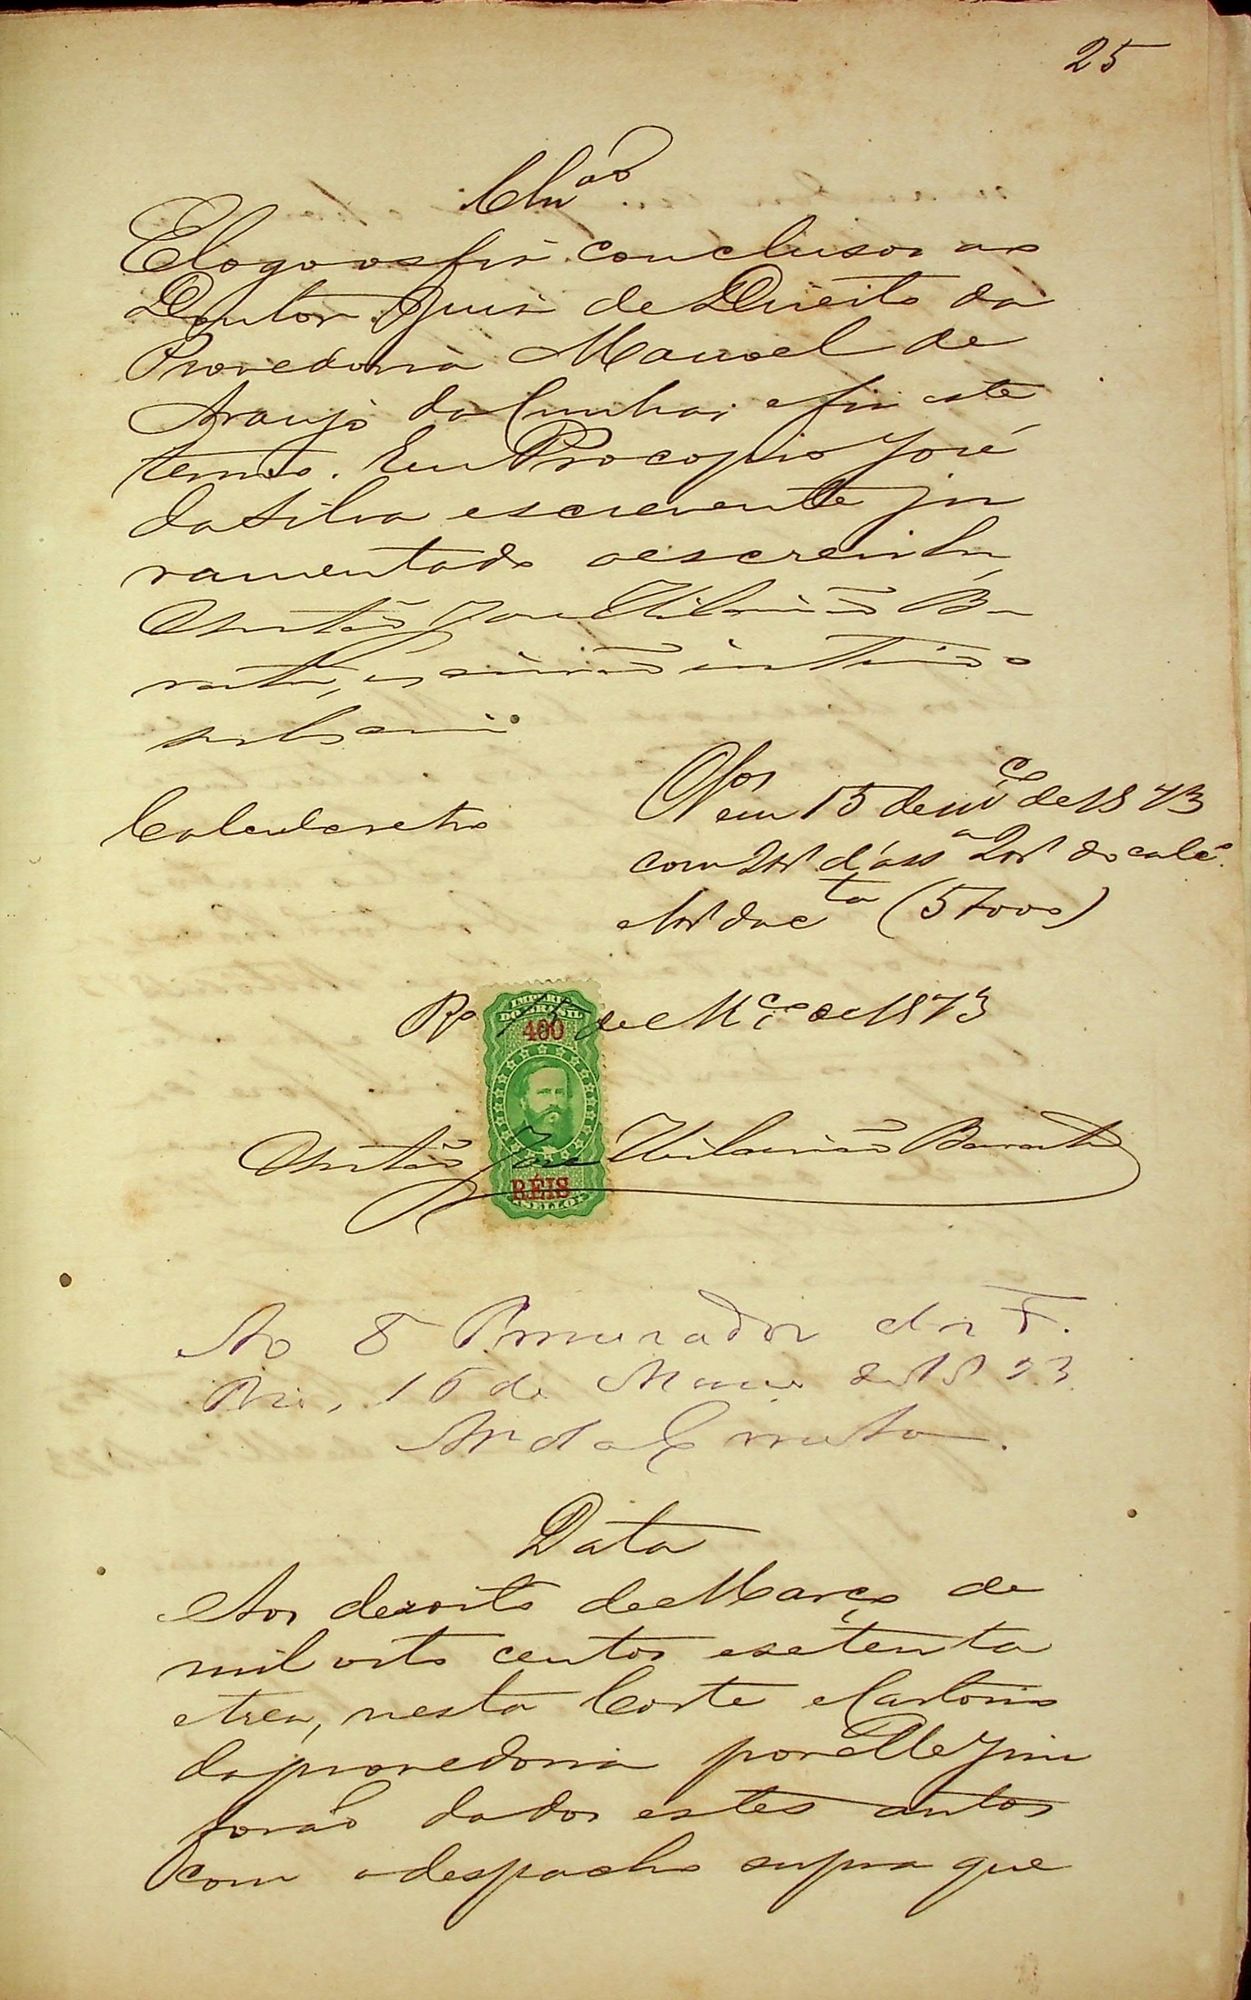 25
Cln.ão
E logo os fis conclusos ao
Doutor Juis de Direito da
Provedoria Manoel de
Araujo da Cunha; e fis este
termo. Eu Procopio José
da Silva escrevente ju
ramentado o escrevi Eu
José Ba
rata, escrivão interino
subscrevi
Clos
em 15 de mço de 1873
com d'ass.a do cale.
(57000)
Rº 15 de Mço de 1873
IMPERIO
DO BRASIL
400
José Barata
RÉIS
SELLO
Ao Sr Procurador dos F.
Rio, 16 de Março de 1873
Ar da Cunha.
Data
Aos dezoito de Março de
mil oito centos e setenta
e tres, nesta Corte e Cartorio
da provedoria por elle Juiz
forão dados estes autos
com o despacho supra que